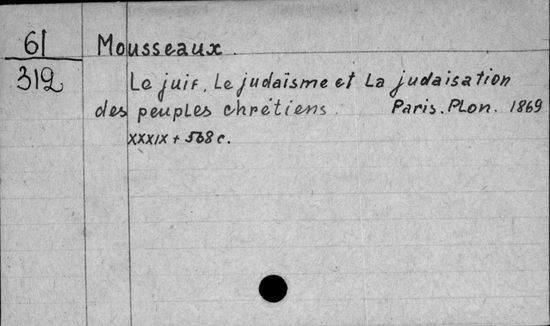 61
312
Mousseaux.
Le juif, Le judaïsme et La judaisation
des peuples chrétiens. Paris. Plon. 1869
XXXIX + 568 c.